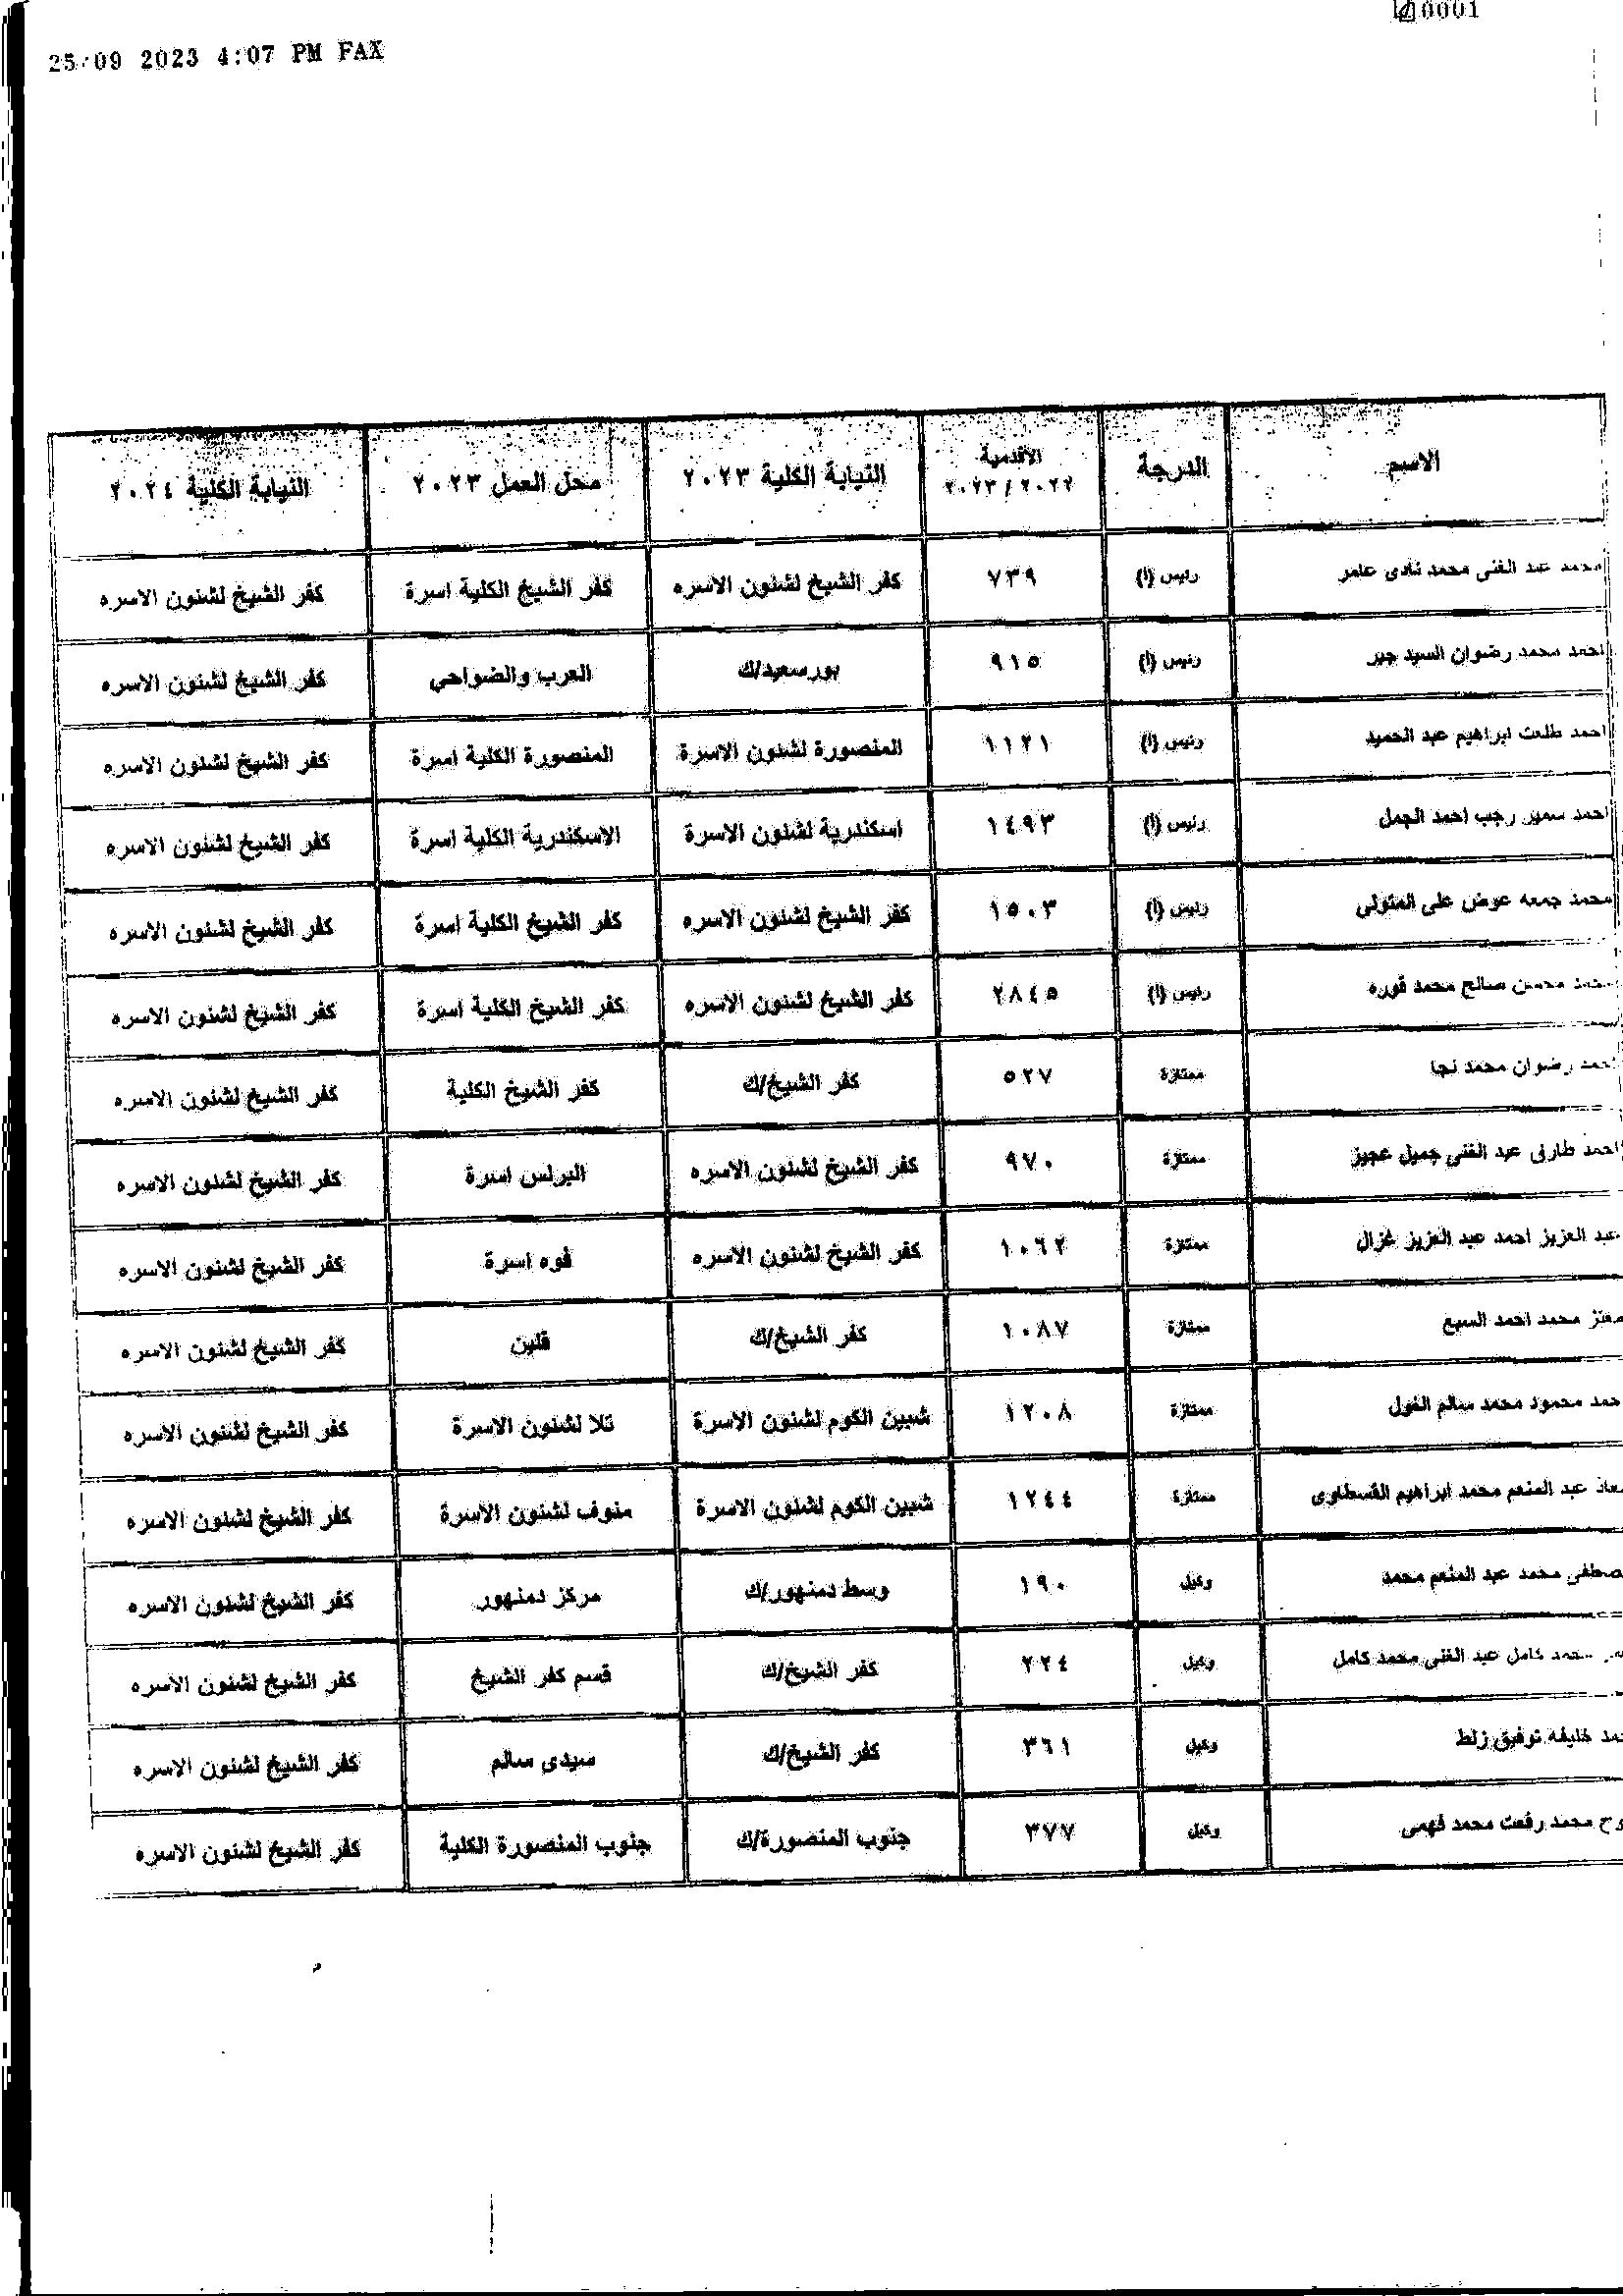 25/09 2023 4:07 PM FAX
0001
الاسم الدرجة الأقدمية ٢٠٢٣/٢٠٢٢ النيابة الكلية ٢٠٢٣ محل العمل ٢٠٢٣ النيابة الكلية ٢٠٢٤
محمد عبد الغنى محمد نادى عامر رئيس (أ) ٧٣٩ كفر الشيخ لشئون الاسره كفر الشيخ الكلية اسرة كفر الشيخ لشئون الاسره
احمد محمد رضوان السيد جبر رئيس (أ) ٩١٥ بورسعيد/ك العرب والضواحي كفر الشيخ لشئون الاسره
احمد طلعت ابراهيم عبد الحميد رئيس (أ) ١١٢١ المنصورة لشئون الاسرة المنصورة الكلية اسرة كفر الشيخ لشئون الاسره
احمد سمير رجب احمد الجمل رئيس (أ) ١٤٩٣ اسكندرية لشئون الاسرة الاسكندرية الكلية اسرة كفر الشيخ لشئون الاسره
محمد جمعه عوض على المتولى رئيس (أ) ١٥٠٣ كفر الشيخ لشئون الاسره كفر الشيخ الكلية اسرة كفر الشيخ لشئون الاسره
محسن صالح محمد قوره رئيس (أ) ٢٨٤٥ كفر الشيخ لشئون الاسره كفر الشيخ الكلية اسرة كفر الشيخ لشئون الاسره
رضوان محمد نجا ممتازة ٥٢٧ كفر الشيخ/ك كفر الشيخ الكلية كفر الشيخ لشئون الاسره
احمد طارق عبد الغنى جميل عجيز ممتازة ٩٧٠ كفر الشيخ لشئون الاسره البرلس اسرة كفر الشيخ لشئون الاسره
عبد العزيز احمد عبد العزيز غزال ممتازة ١٠٦٢ كفر الشيخ لشئون الاسره فوه اسرة كفر الشيخ لشئون الاسره
معتز محمد احمد السبع ممتازة ١٠٨٧ كفر الشيخ/ك قلين كفر الشيخ لشئون الاسره
حمد محمود محمد سالم الفول ممتازة ١٢٠٨ شبين الكوم لشئون الاسرة تلا لشئون الاسرة كفر الشيخ لشئون الاسره
عبد المنعم محمد ابراهيم القسطاوى ممتازة ١٢٤٤ شبين الكوم لشئون الاسرة منوف لشئون الاسرة كفر الشيخ لشئون الاسره
صطفى محمد عبد المنعم محمد وكيل ١٩٠ وسط دمنهور/ك مركز دمنهور كفر الشيخ لشئون الاسره
محمد كامل عبد الغنى محمد كامل وكيل ٢٢٤ كفر الشيخ/ك قسم كفر الشيخ كفر الشيخ لشئون الاسره
خليفه توفيق زلط وكيل ٣٦١ كفر الشيخ/ك سيدى سالم كفر الشيخ لشئون الاسره
وح محمد رفعت محمد فهمى وكيل ٣٧٧ جنوب المنصورة/ك جنوب المنصورة الكلية كفر الشيخ لشئون الاسره